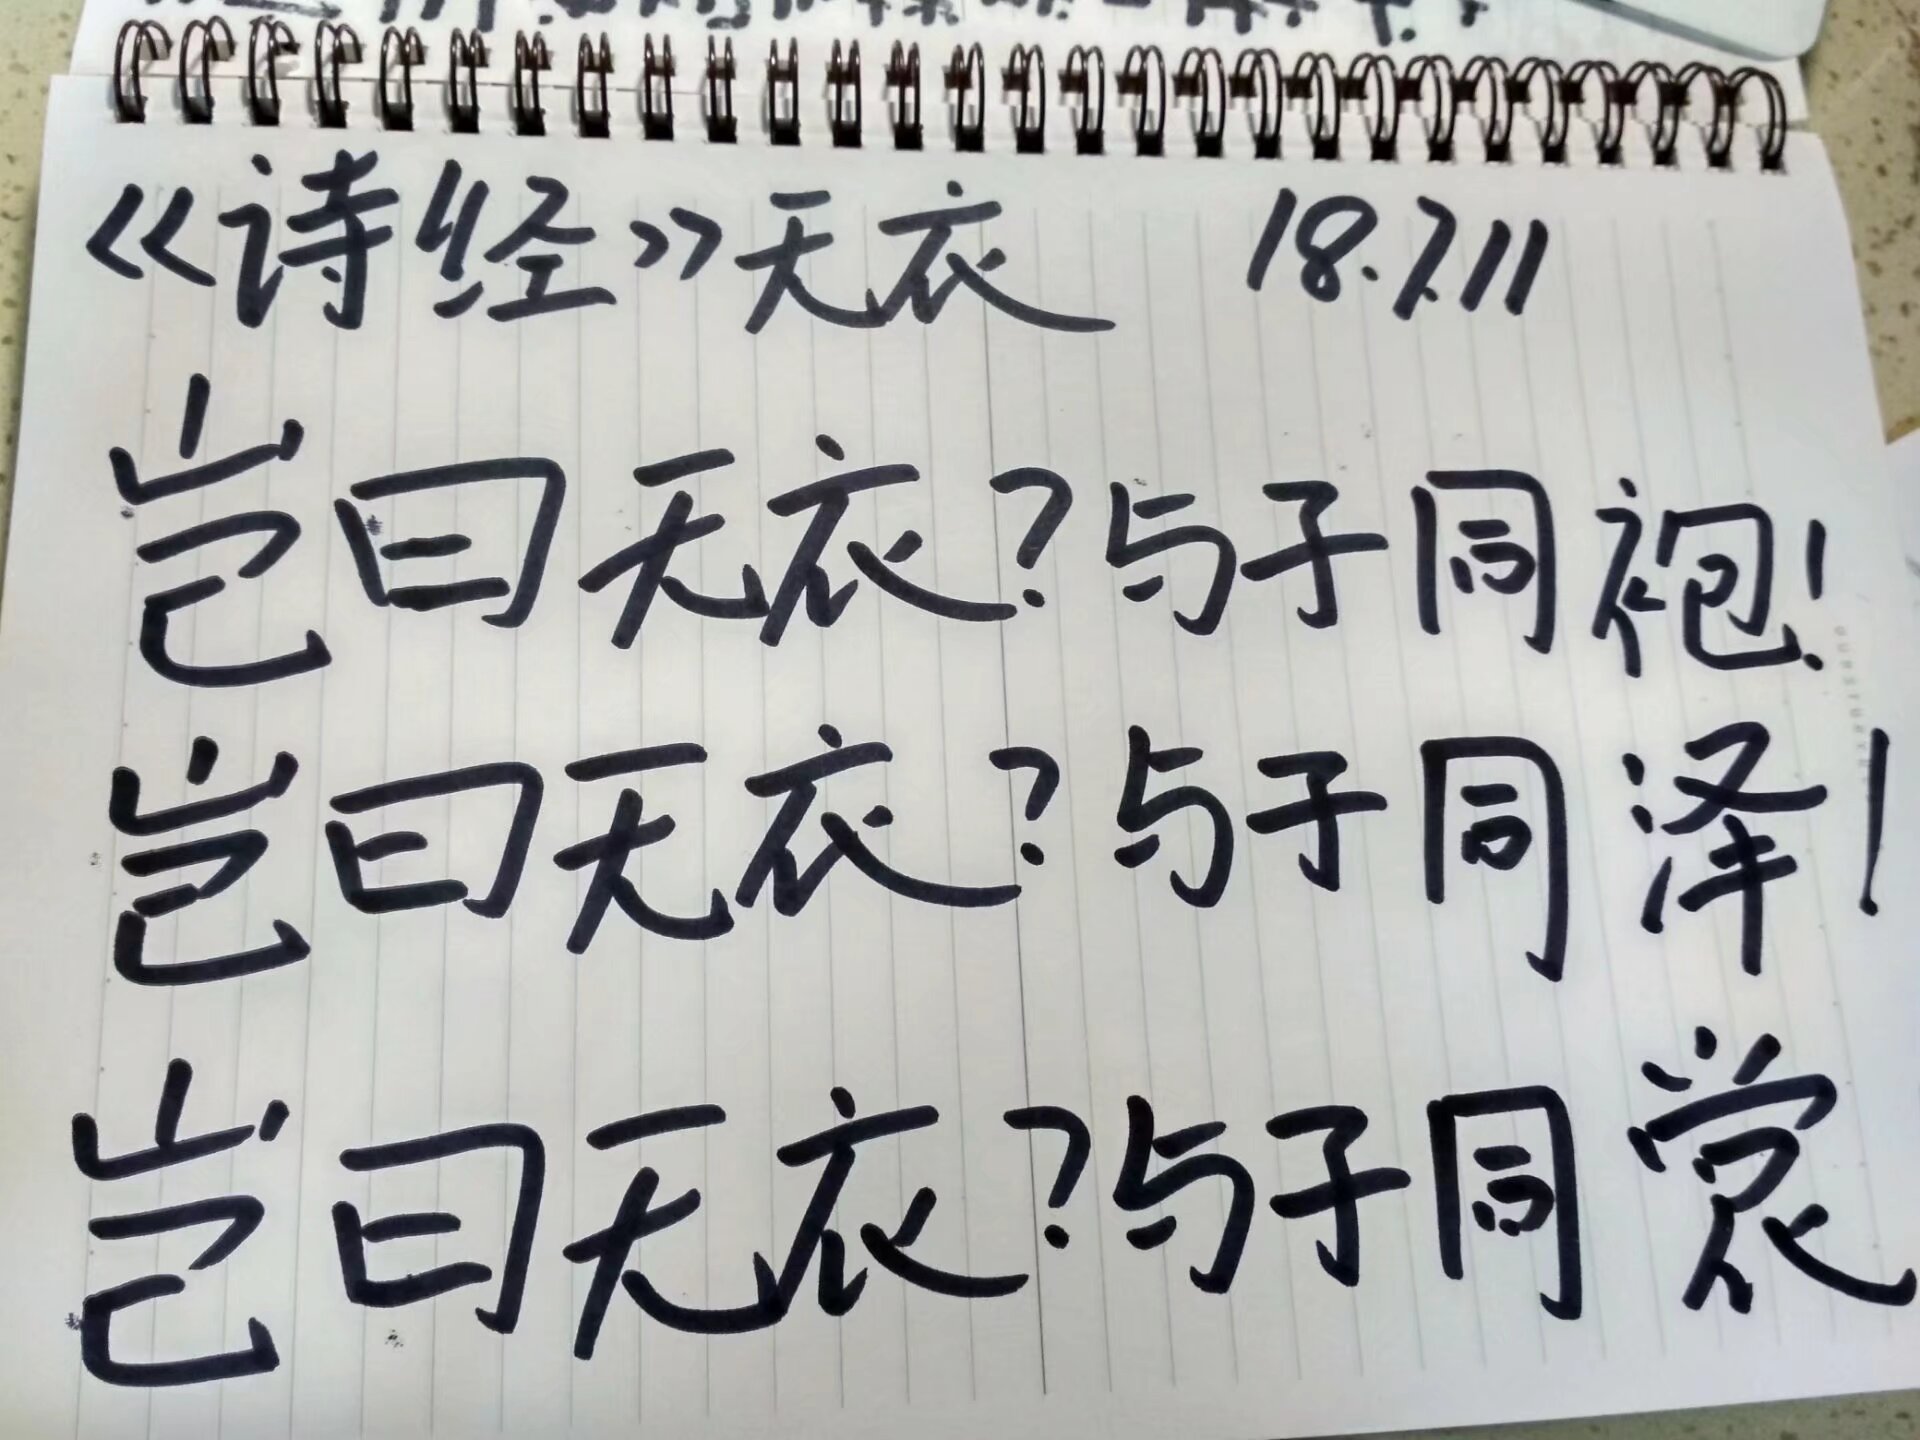 《诗经》无衣 18.7.11
岂曰无衣?与子同袍!
岂曰无衣?与子同泽!
岂曰无衣?与子同裳